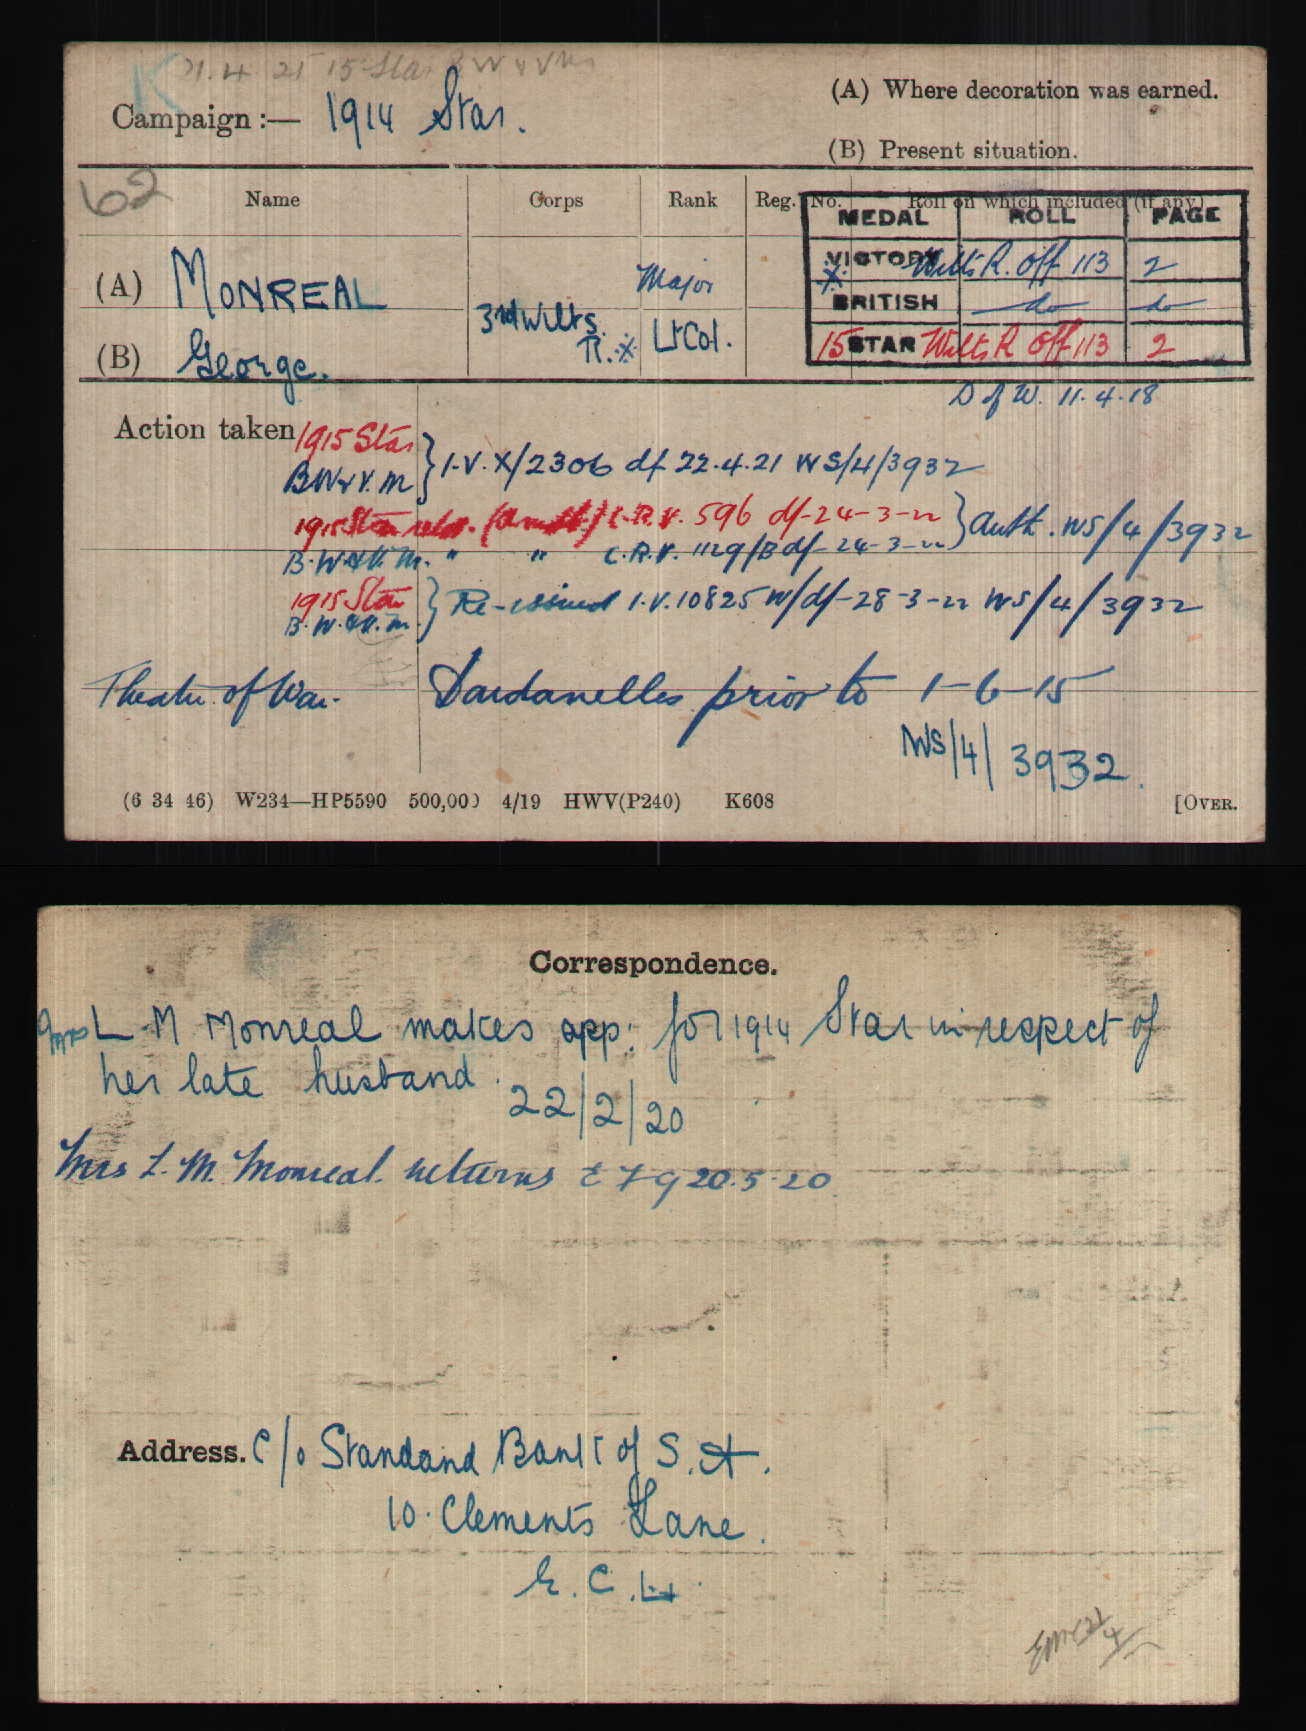 K 21.4.21 15 Star B W & V M
Campaign :— 1914 Star.
(A) Where decoration was earned.
(B) Present situation.
62
Name Corps Rank Reg. No. Roll on which included (if any)
MEDAL ROLL PAGE
VICTORY Wilts R. Off 113 2
BRITISH do do
15 STAR Wilts R Off 113 2
(A) MONREAL
(B) George.
3rd Wilts. R. x
Major
Lt Col.
D of W. 11.4.18
Action taken
1915 Star
B W & V. M } I.V. X/2306 d/- 22.4.21 WS/4/3932
1915 Star retd. C.R.V. 596 d/- 24-3-22 } Auth. WS/4/3932
B.W. & V. M. " " C.R.V. 1129/B d/- 24-3-22
1915 Star
B.W. & V. M. } Re-issued I.V. 10825 W/d/- 28-3-22 WS/4/3932
Theatre of War. Dardanelles prior to 1-6-15
NWS/4/3932.
(6 34 46) W234—HP5590 500,000 4/19 HWV(P240) K608 [OVER.
Correspondence.
Mrs L M Monreal makes app: for 1914 Star in respect of
her late husband.
22/2/20
Mrs L. M. Monreal. returns 20.5.20
Address. C/o Standard Bank of S. A.
10. Clements Lane.
E. C. 4.